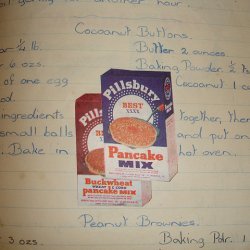 another hour.
Cocoanut Buttons.
1/4 lb. Butter 2 ounces.
6 ozs. Baking Powder 1/2
of one egg Cocoanut 1 c
ingredients Together, then
small balls and put on
Bake in hot oven..
Pillsbury
BEST
XXXX
Pancake
MIX
Pillsbury
BEST
XXXX
Buckwheat
pancake MIX
Peanut Brownies.
3 ozs. Baking Pdr. 1